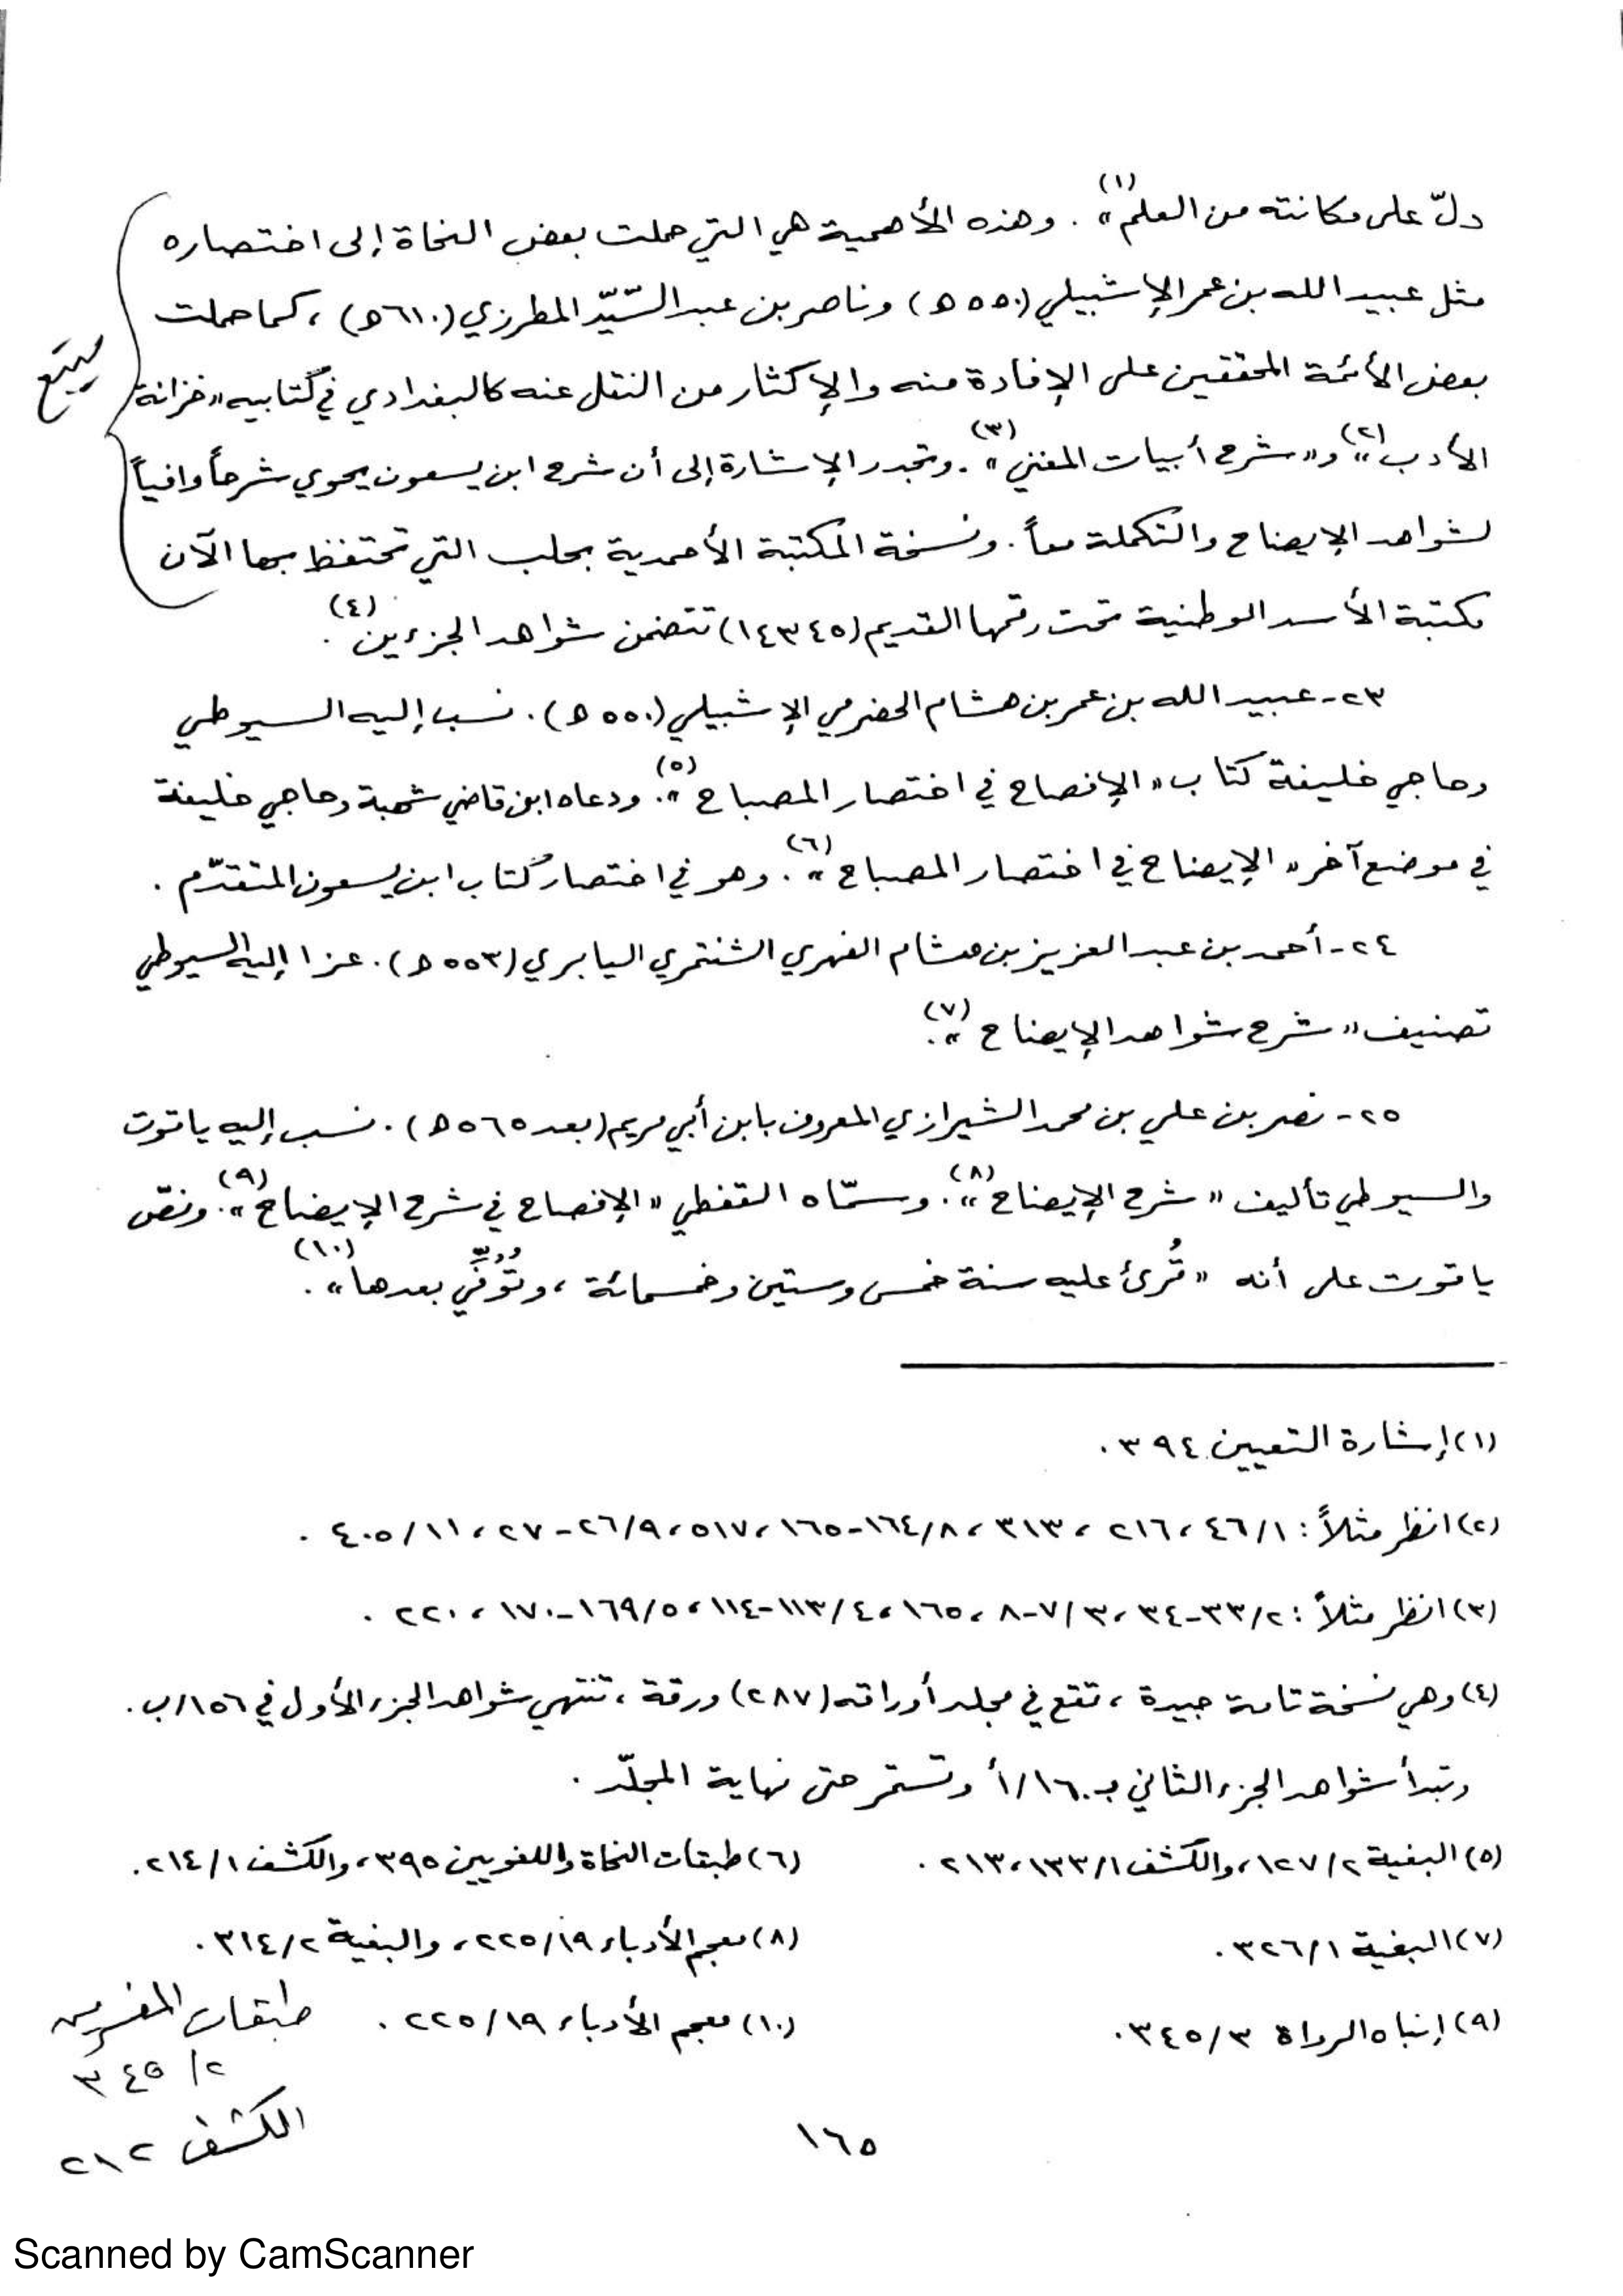 دلّ على مكانته من العلم»(١). وهذه الأهمية هي التي حملت بعض النحاة إلى اختصاره
مثل عبيد الله بن عمر الإشبيلي (٥٥٠ ه) وناصر بن عبد السّيّد المطرزي (٦١٠ ه)، كما حملت
بعض الأئمة المحققين على الإفادة منه والإكثار من النقل عنه كالبغدادي في كتابيه «خزانة
الأدب»(٢) و«شرح أبيات المغني»(٣). وتجدر الإشارة إلى أن شرح ابن يسعون يحوي شرحاً وافياً
لشواهد الإيضاح والتكملة معاً. ونسخة المكتبة الأحمدية بحلب التي تحتفظ بها الآن
مكتبة الأسد الوطنية تحت رقمها القديم (١٤٣٤٥) تتضمن شواهد الجزءين(٤).
٢٣- عبيد الله بن عمر بن هشام الحضرمي الإشبيلي (٥٥٠ ه). نسب إليه السيوطي
وحاجي خليفة كتاب «الإفصاح في اختصار المصباح»(٥). ودعاه ابن قاضي شهبة وحاجي خليفة
في موضع آخر «الإيضاح في اختصار المصباح»(٦). وهو في اختصار كتاب ابن يسعون المتقدّم.
٢٤- أحمد بن عبد العزيز بن هشام الفهري الشنتمري اليابري (٥٥٣ ه). عزا إليه السيوطي
تصنيف «شرح شواهد الإيضاح»(٧).
٢٥- نصر بن علي بن محمد الشيرازي المعروف بابن أبي مريم (بعد ٥٦٥ ه). نسب إليه ياقوت
والسيوطي تأليف «شرح الإيضاح»(٨). وسمّاه القفطي «الإفصاح في شرح الإيضاح»(٩). ونصّ
ياقوت على أنه «قُرئ عليه سنة خمس وستين وخمسمائة، وتُوُفِّي بعدها»(١٠).
(١) إشارة التعيين ٣٩٤.
(٢) انظر مثلاً: ٤٦/١، ٢١٦، ٣١٣، ١٦٤/٨-١٦٥، ٥١٧، ٢٦/٩-٢٧، ٤٠٥/١١.
(٣) انظر مثلاً: ٣٣/٢-٣٤، ٧/٣-٨، ١٦٥، ١١٣/٤-١١٤، ١٦٩/٥-١٧٠، ٢٢٠.
(٤) وهي نسخة تامة جيدة، تقع في مجلد أوراقه (٢٨٧) ورقة، تنتهي شواهد الجزء الأول في ١٥٦/ب.
وتبدأ شواهد الجزء الثاني بـ ١٦٠/أ وتستمر حتى نهاية المجلّد.
(٥) البغية ١٢٧/٢، والكشف ١٣٣/١، ٢١٣. (٦) طبقات النحاة واللغويين ٣٩٥، والكشف ٢١٤/١.
(٧) البغية ٣٢٦/١. (٨) معجم الأدباء ٢٢٥/١٩، والبغية ٣١٤/٢.
(٩) إنباه الرواة ٣٤٥/٣. (١٠) معجم الأدباء ٢٢٥/١٩.
طبقات المفسرين
٣٤٥/٢
الكشف ٢١٢
١٦٥
Scanned by CamScanner